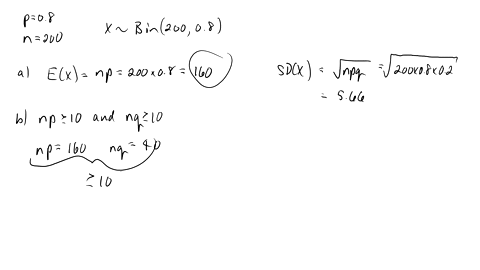 p=0.8
n=200
X ~ Bin(200, 0.8)
a) E(X) = np = 200x0.8 = 160
SD(X) = √npq = √200x0.8x0.2
= 5.66
b) np ≥ 10 and nq ≥ 10
np = 160 nq = 40
≥ 10